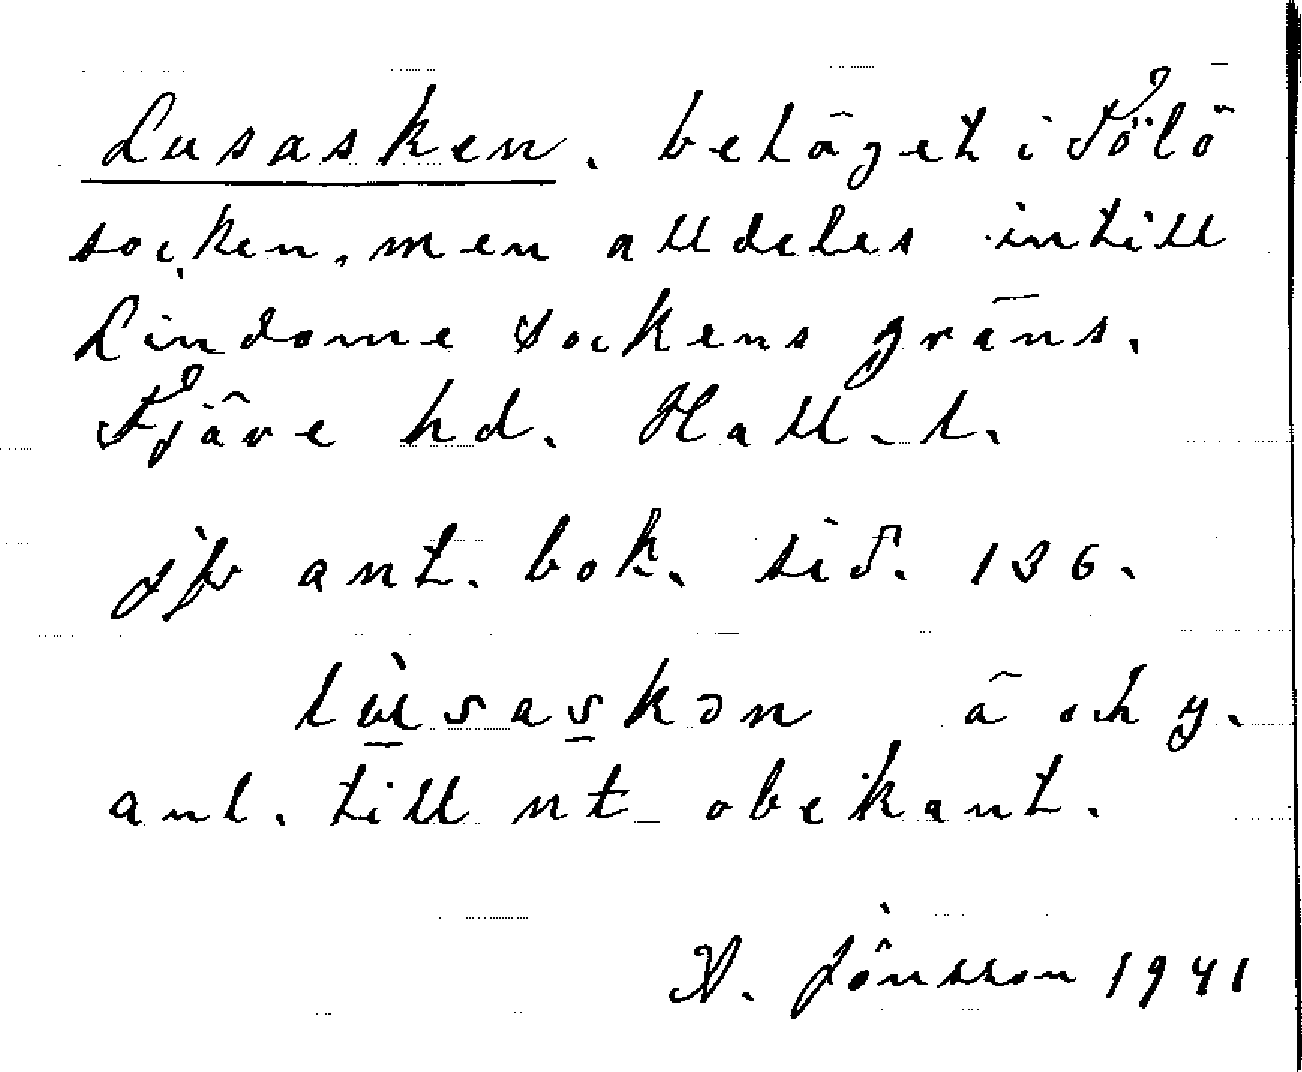 Lusasken. beläget i Tölö
socken, men alldeles intill
Lindome sockens gräns.
Fjäre hd. Hall. l.
jfr ant. bok. sid. 136.
lùsaskən ä och y.
anl. till nt obekant.
A. Jönsson 1941